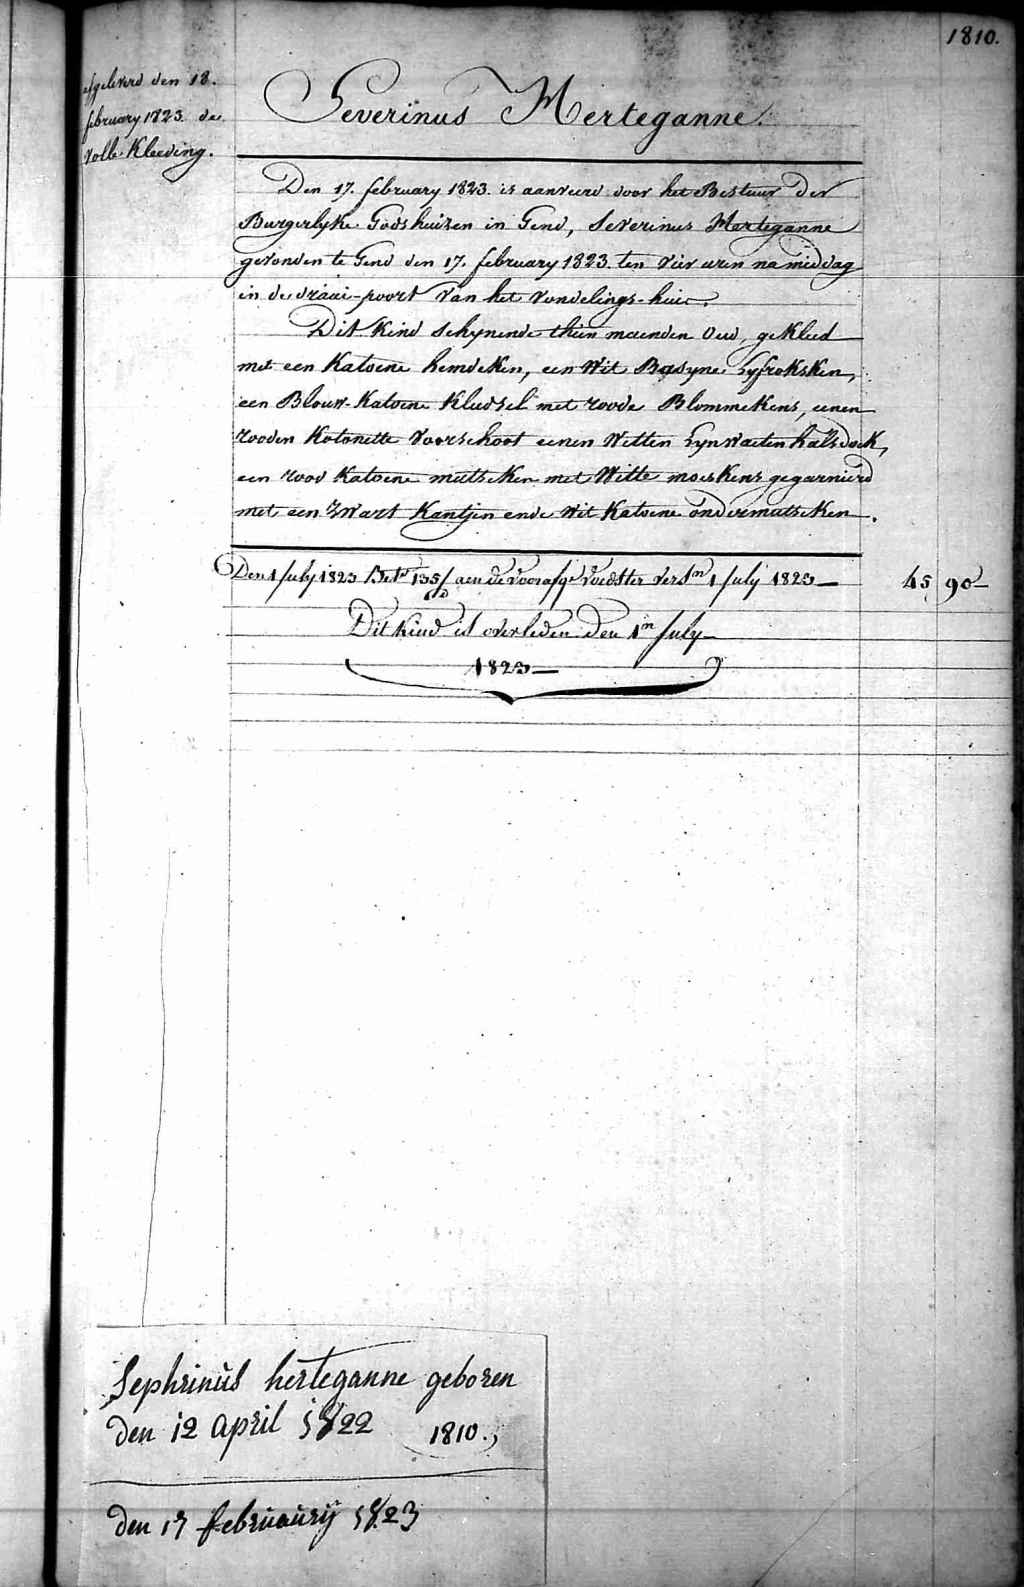 1810.
afgeleverd den 18.
february 1823. de
volle Kleeding.
Severinus Herteganne.
Den 17. february 1823. is aanveerd door het Bestuur Der
Burgerlyke Godshuizen in Gend, Severinus Herteganne
gevonden te Gend den 17. february 1823. ten vier uren namiddag
in de draai-poort van het vondelings-huis.
Dit Kind schynende thien maenden oud, gekleed
met een Katoene hemdeken, een Wit Basyne Lyfroksken,
een Blouw-Katoene Kleedsel met roode Blommekens, eenen
rooden Kotonette Voorschoot eenen Witten Lynwaeten halsdoek,
een rood Katoene mutseken met Witte moeskens gegarnierd
met een Zwart Kantjen ende Wit Katoene ondermutseken.
Den 1 July 1823 Bet. 135 aen de voorafge voedster vers.n 1 July 1823 — 45 90 —
Dit kind is overleden den 1.n July
1823 —
Sephrinus herteganne geboren
den 12 april 1822 1810.
den 17 februaurij 1823